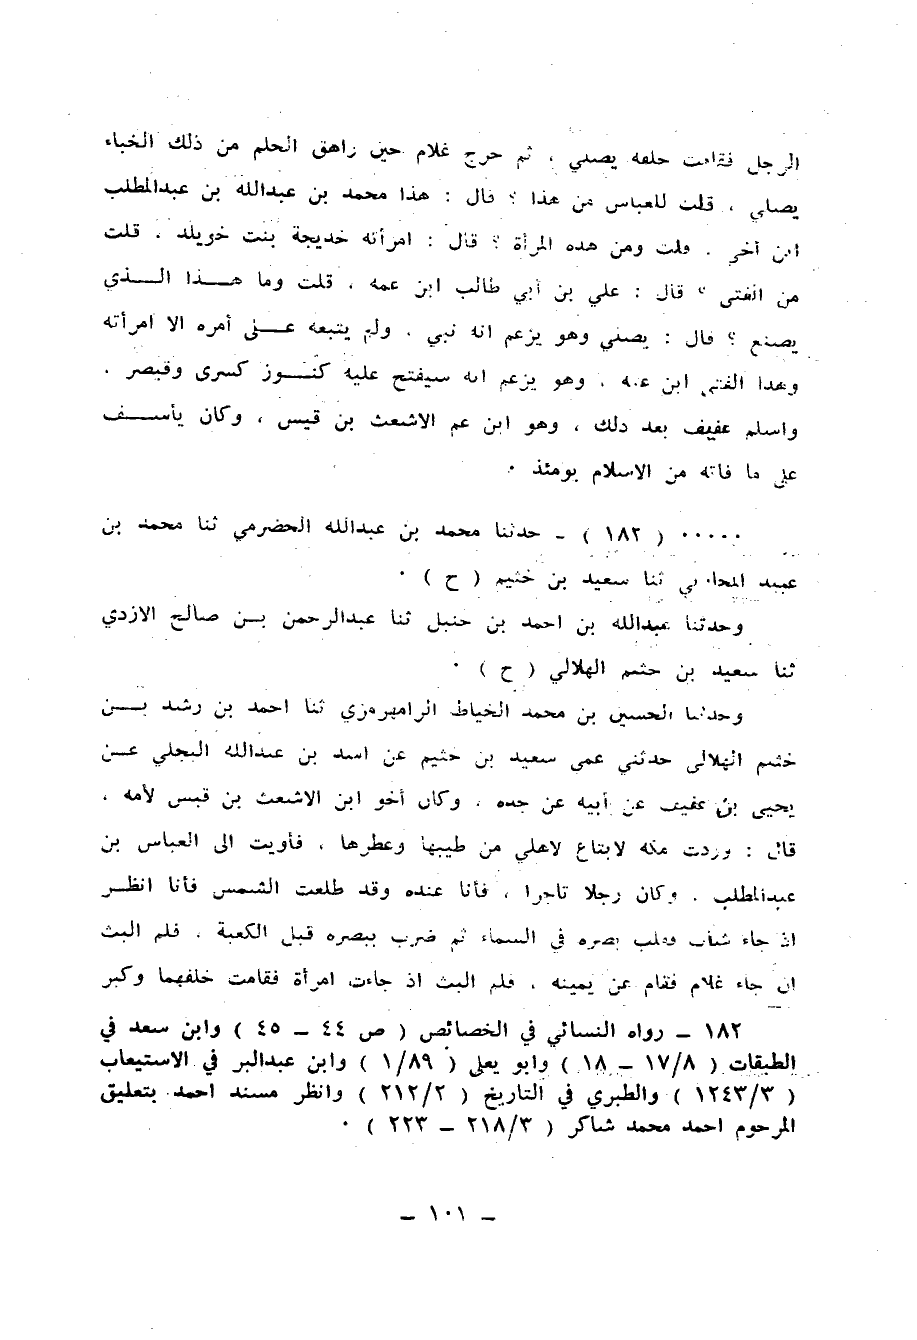 الرجل فقامت خلفه يصلي ، ثم خرج غلام حين راهق الحلم من ذلك الخباء
يصلي ، قلت للعباس من هذا ؟ قال : هذا محمد بن عبدالله بن عبدالمطلب
ابن أخي . قلت ومن هذه المرأة ؟ قال : امرأته خديجة بنت خويلد ، قلت
من الفتى ؟ قال : علي بن أبي طالب ابن عمه ، قلت وما هــذا الــذي
يصنع ؟ قال : يصلي وهو يزعم انه نبي ، ولم يتبعه عــلى أمره الا امرأته
وهذا الفتى ابن عمه ، وهو يزعم انه سيفتح عليه كنــوز كسرى وقيصر .
واسلم عفيف بعد ذلك ، وهو ابن عم الاشعث بن قيس ، وكان يأســف
على ما فاته من الاسلام يومئذ ٠
٠٠٠٠٠ ( ١٨٢ ) ـ حدثنا محمد بن عبدالله الحضرمي ثنا محمد بن
عبيد المحاربي ثنا سعيد بن خثيم ( ح ) ٠
وحدثنا عبدالله بن احمد بن حنبل ثنا عبدالرحمن بــن صالح الازدي
ثنا سعيد بن خثيم الهلالي ( ح ) ٠
وحدثنا الحسين بن محمد الخياط الرامهرمزي ثنا احمد بن رشد بــن
خثيم الهلالي حدثني عمي سعيد بن خثيم عن اسد بن عبدالله البجلي عــن
يحيى بن عفيف عن أبيه عن جده ، وكان أخو ابن الاشعث بن قيس لأمه ،
قال : وردت مكة لابتاع لاهلي من طيبها وعطرها ، فأويت الى العباس بن
عبدالمطلب . وكان رجلا تاجرا ، فأنا عنده وقد طلعت الشمس فأنا انظــر
اذ جاء شاب فقلب بصره في السماء ثم ضرب ببصره قبل الكعبة ، فلم البث
ان جاء غلام فقام عن يمينه ، فلم البث اذ جاءت امرأة فقامت خلفهما وكبر
١٨٢ ــ رواه النسائي في الخصائص ( ص ٤٤ ــ ٤٥ ) وابن سعد في
الطبقات ( ١٧/٨ ــ ١٨ ) وابو يعلى ( ١/٨٩ ) وابن عبدالبر في الاستيعاب
( ١٢٤٣/٣ ) والطبري في التاريخ ( ٢١٢/٢ ) وانظر مسند احمد بتعليق
المرحوم احمد محمد شاكر ( ٢١٨/٣ ــ ٢٢٣ ) ٠
ــ ١٠١ ــ